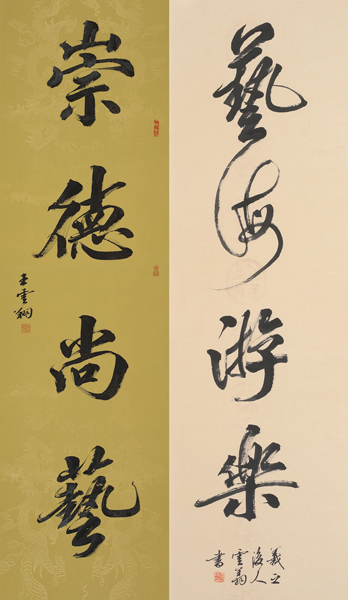 藝海游樂
羲之
後人
雲翁
書
崇德尚藝
王雲翔